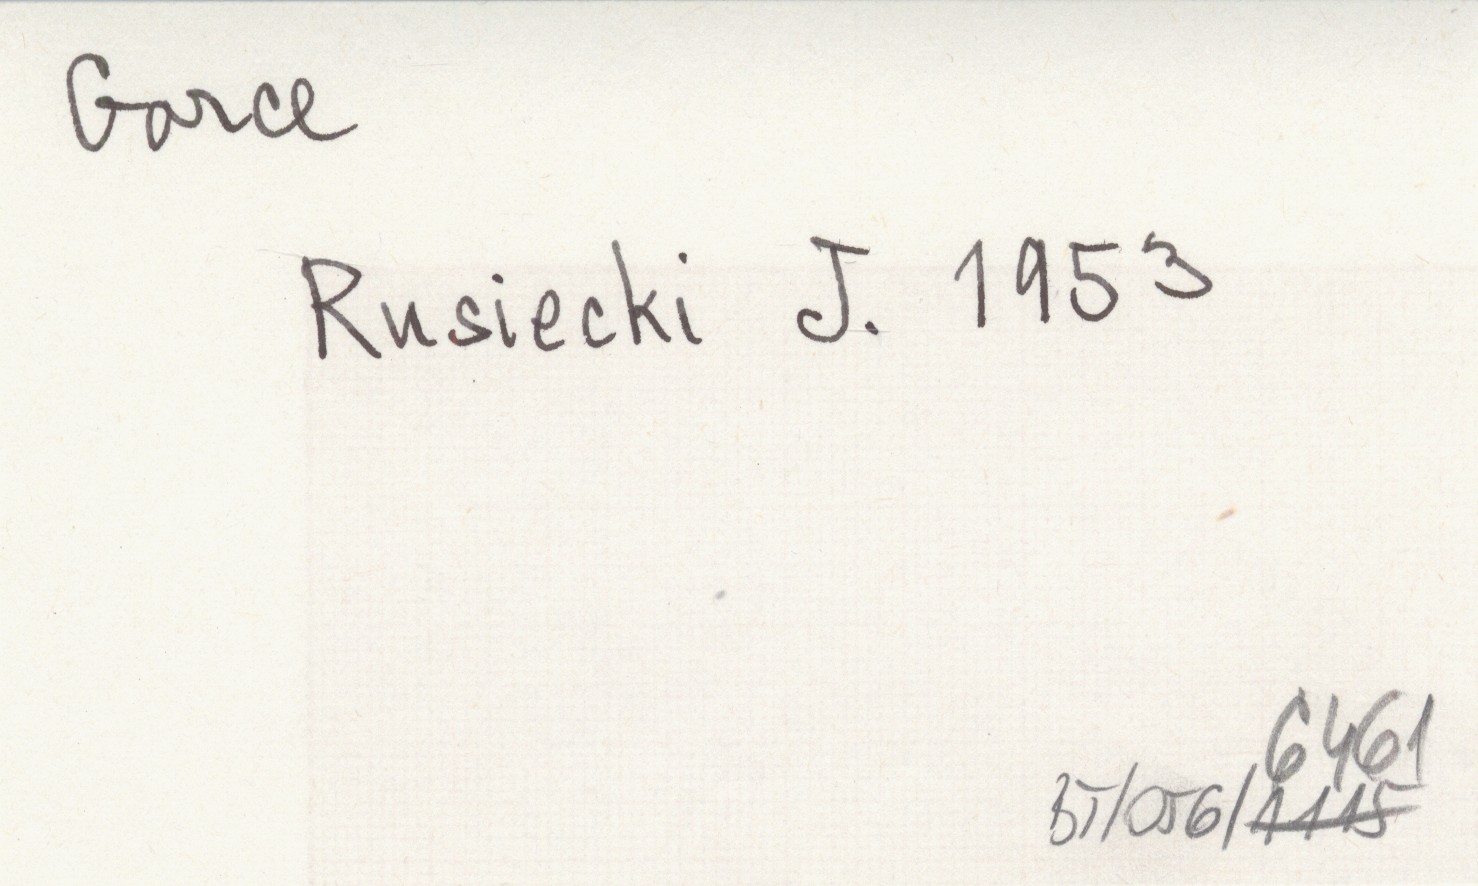 Garce
Rusiecki J. 1953
6461
BT/056/1115